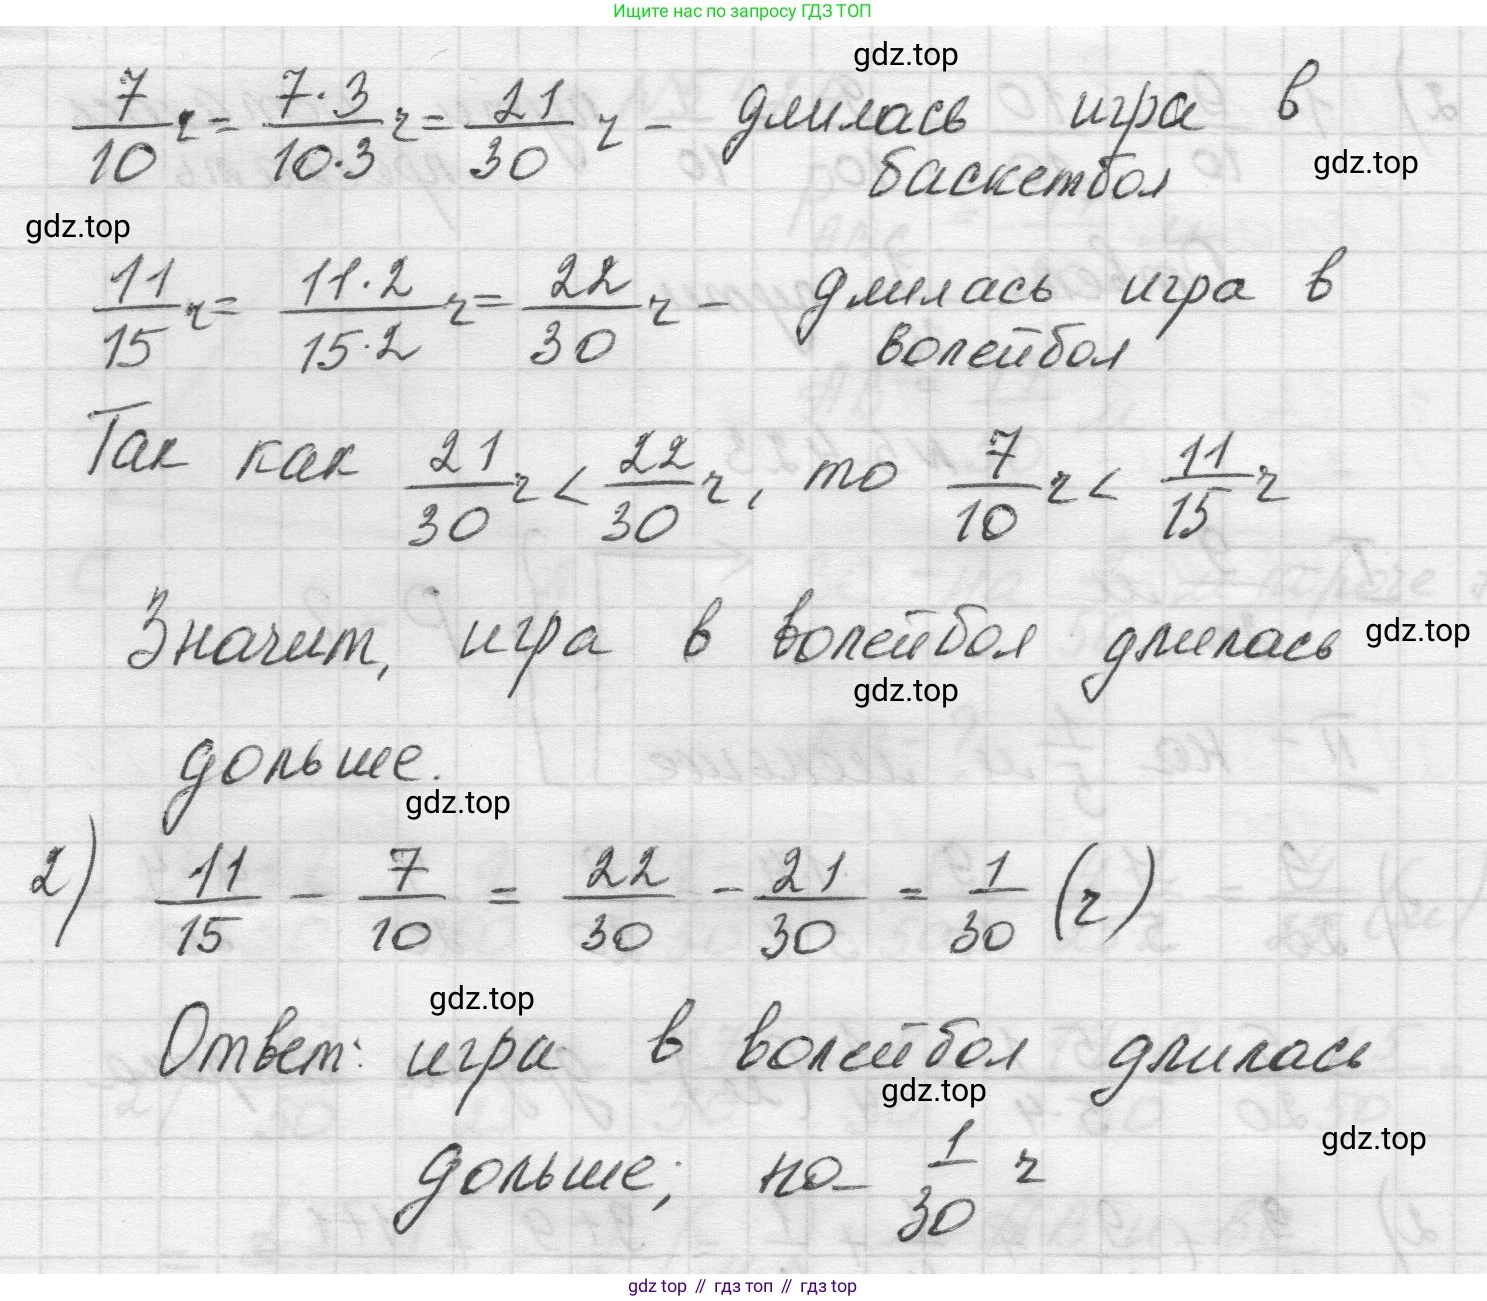 Ищите нас по запросу ГДЗ ТОП
gdz.top
7/10 ч = 7·3/10·3 ч = 21/30 ч – длилась игра в
баскетбол
gdz.top
gdz.top
11/15 ч = 11·2/15·2 ч = 22/30 ч – длилась игра в
волейбол
Так как 21/30 ч < 22/30 ч, то 7/10 ч < 11/15 ч
Значит, игра в волейбол длилась
gdz.top
gdz.top
дольше.
gdz.top
2) 11/15 – 7/10 = 22/30 – 21/30 = 1/30 (ч)
gdz.top
Ответ: игра в волейбол длилась
gdz.top
gdz.top
дольше; на 1/30 ч
gdz top // гдз топ // gdz top